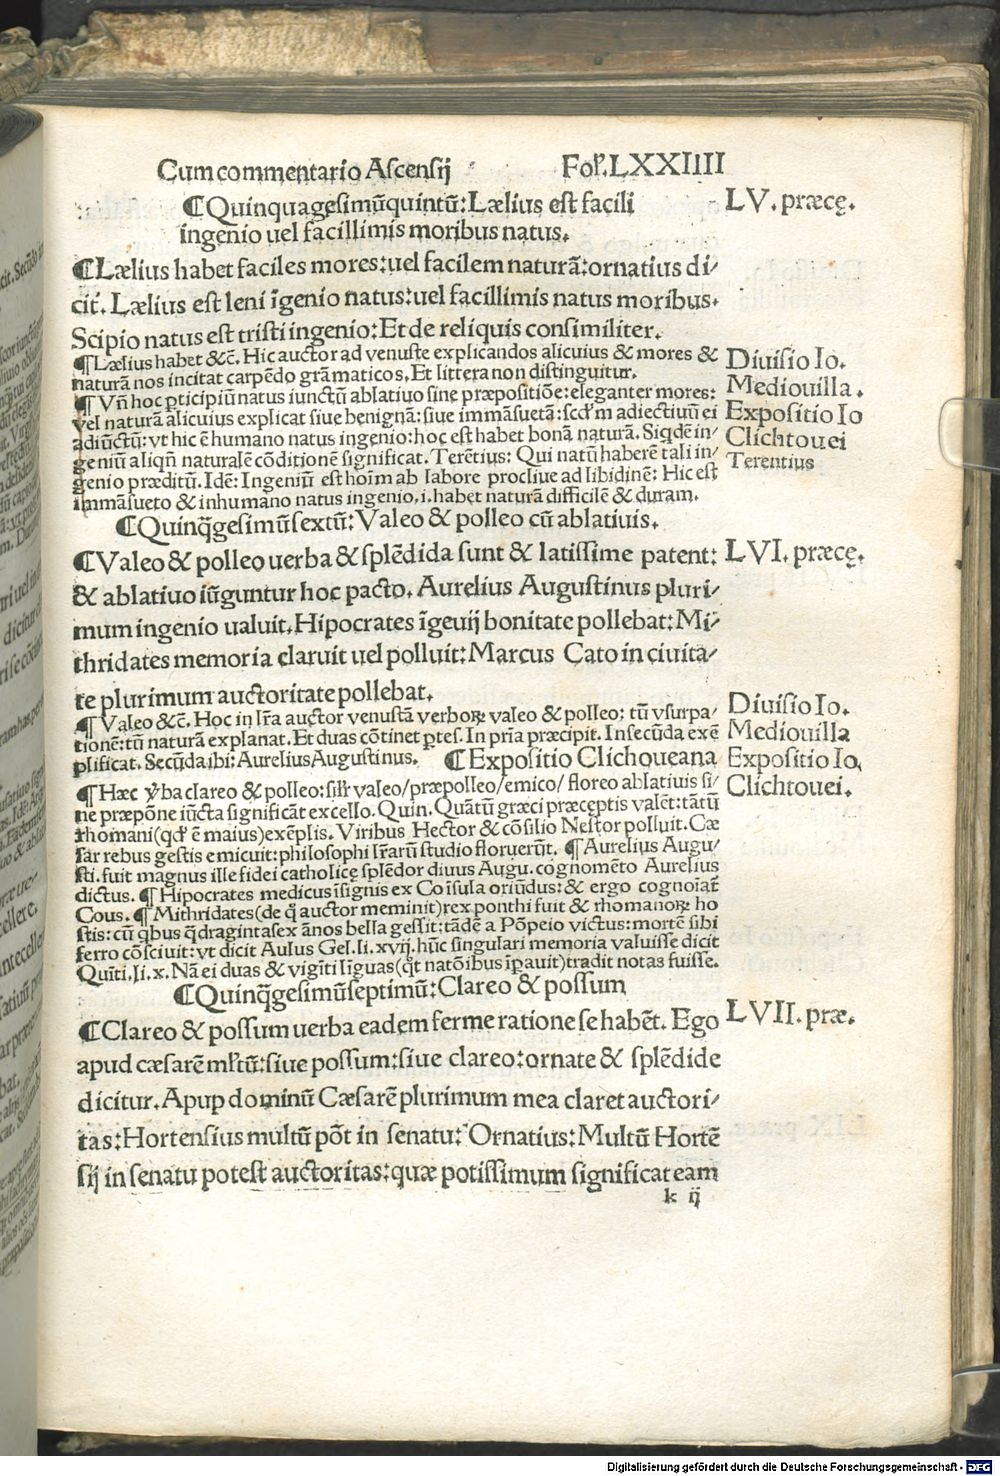 Cum commentario Ascensij Fol. LXXIIII
¶Quinquagesimũquintũ: Lælius est facili
ingenio uel facillimis moribus natus.
LV. præcę.
¶Lælius habet faciles mores: uel facilem naturã: ornatius di/
cit͛. Lælius est leni ĩgenio natus: uel facillimis natus moribus.
Scipio natus est tristi ingenio: Et de reliquis consimiliter.
¶Lælius habet &c̃. Hic auctor ad venuste explicandos alicuius & mores &
naturã nos incitat carpẽdo grãmaticos. Et littera non distinguitur.
Diuisio Io.
Mediouilla.
¶Vñ hoc pticipiũ natus iunctũ ablatiuo sine præpositiõe: eleganter mores:
vel naturã alicuius explicat siue benignã: siue immãsuetã: scd'm adiectiuũ ei
adiũctũ: vt hic ẽ humano natus ingenio: hoc est habet bonã naturã. Siqdẽ in/
geniũ aliqñ naturalẽ cõditionẽ significat. Terẽtius: Qui natũ haberẽ tali in/
genio præditũ. Idẽ: Ingeniũ est hoĩm ab labore procliue ad libidinẽ: Hic est
immãsueto & inhumano natus ingenio, i. habet naturã difficilẽ & duram.
Expositio Io
Clichtouei
Terentius
¶Quinq̃gesimũsextũ: Valeo & polleo cũ ablatiuis.
¶Valeo & polleo uerba & splẽdida sunt & latissime patent:
& ablatiuo iũguntur hoc pacto. Aurelius Augustinus pluri/
mum ingenio ualuit. Hipocrates ĩgeuij bonitate pollebat: Mi/
thridates memoria claruit uel polluit: Marcus Cato in ciuita/
te plurimum auctoritate pollebat.
LVI. præcę.
¶Valeo &c̃. Hoc in lr̃a auctor venustã verboꝝ valeo & polleo: tũ vsurpa/
tionẽ: tũ naturã explanat. Et duas cõtinet ptes. In prĩa præcipit. In secũda exẽ
plificat. Secũda ibi: Aurelius Augustinus. ¶Expositio Clichoueana
Diuisio Io.
Mediouilla
Expositio Io.
Clichtouei.
¶Hæc v̓ba clareo & polleo: silr̃ valeo/præpolleo/emico/ floreo ablatiuis si/
ne præpõne iũcta significãt excello. Quin. Quãtũ græci præceptis valẽt: tãtũ
rhomani(qd' ẽ maius)exẽplis. Viribus Hector & cõsilio Nestor polluit. Cæ
sar rebus gestis emicuit: philosophi lr̃arũ studio floruerũt. ¶Aurelius Augu/
sti. fuit magnus ille fidei catholicę splẽdor diuus Augu. cognomẽto Aurelius
dictus. ¶Hipocrates medicus ĩsignis ex Co ĩsula oriũdus: & ergo cognoĩat͛
Cous. ¶Mithridates(de q̃ auctor meminit)rex ponthi fuit & rhomanoꝝ ho
stis: cũ qbus q̃dragintasex ãnos bella gessit: tãdẽ a Põpeio victus: mortẽ sibi
ferro cõsciuit: vt dicit Aulus Gel. li. xvij. hũc singulari memoria valuisse dicit
Quĩti. li. x. Nã ei duas & vigĩti lĩguas(q̃t natõibus ĩpauit)tradit notas fuisse.
¶Quinq̃gesimũseptimũ: Clareo & possum
¶Clareo & possum uerba eadem ferme ratione se habẽt. Ego
apud cæsarẽ ml'tũ: siue possum: siue clareo: ornate & splẽdide
dicitur. Apup dominũ Cæsarẽ plurimum mea claret auctori/
tas: Hortensius multũ põt in senatu: Ornatius: Multũ Hortẽ
sij in senatu potest auctoritas: quæ potissimum significat eam
LVII. præ.
k ij
Digitalisierung gefördert durch die Deutsche Forschungsgemeinschaft - DFG